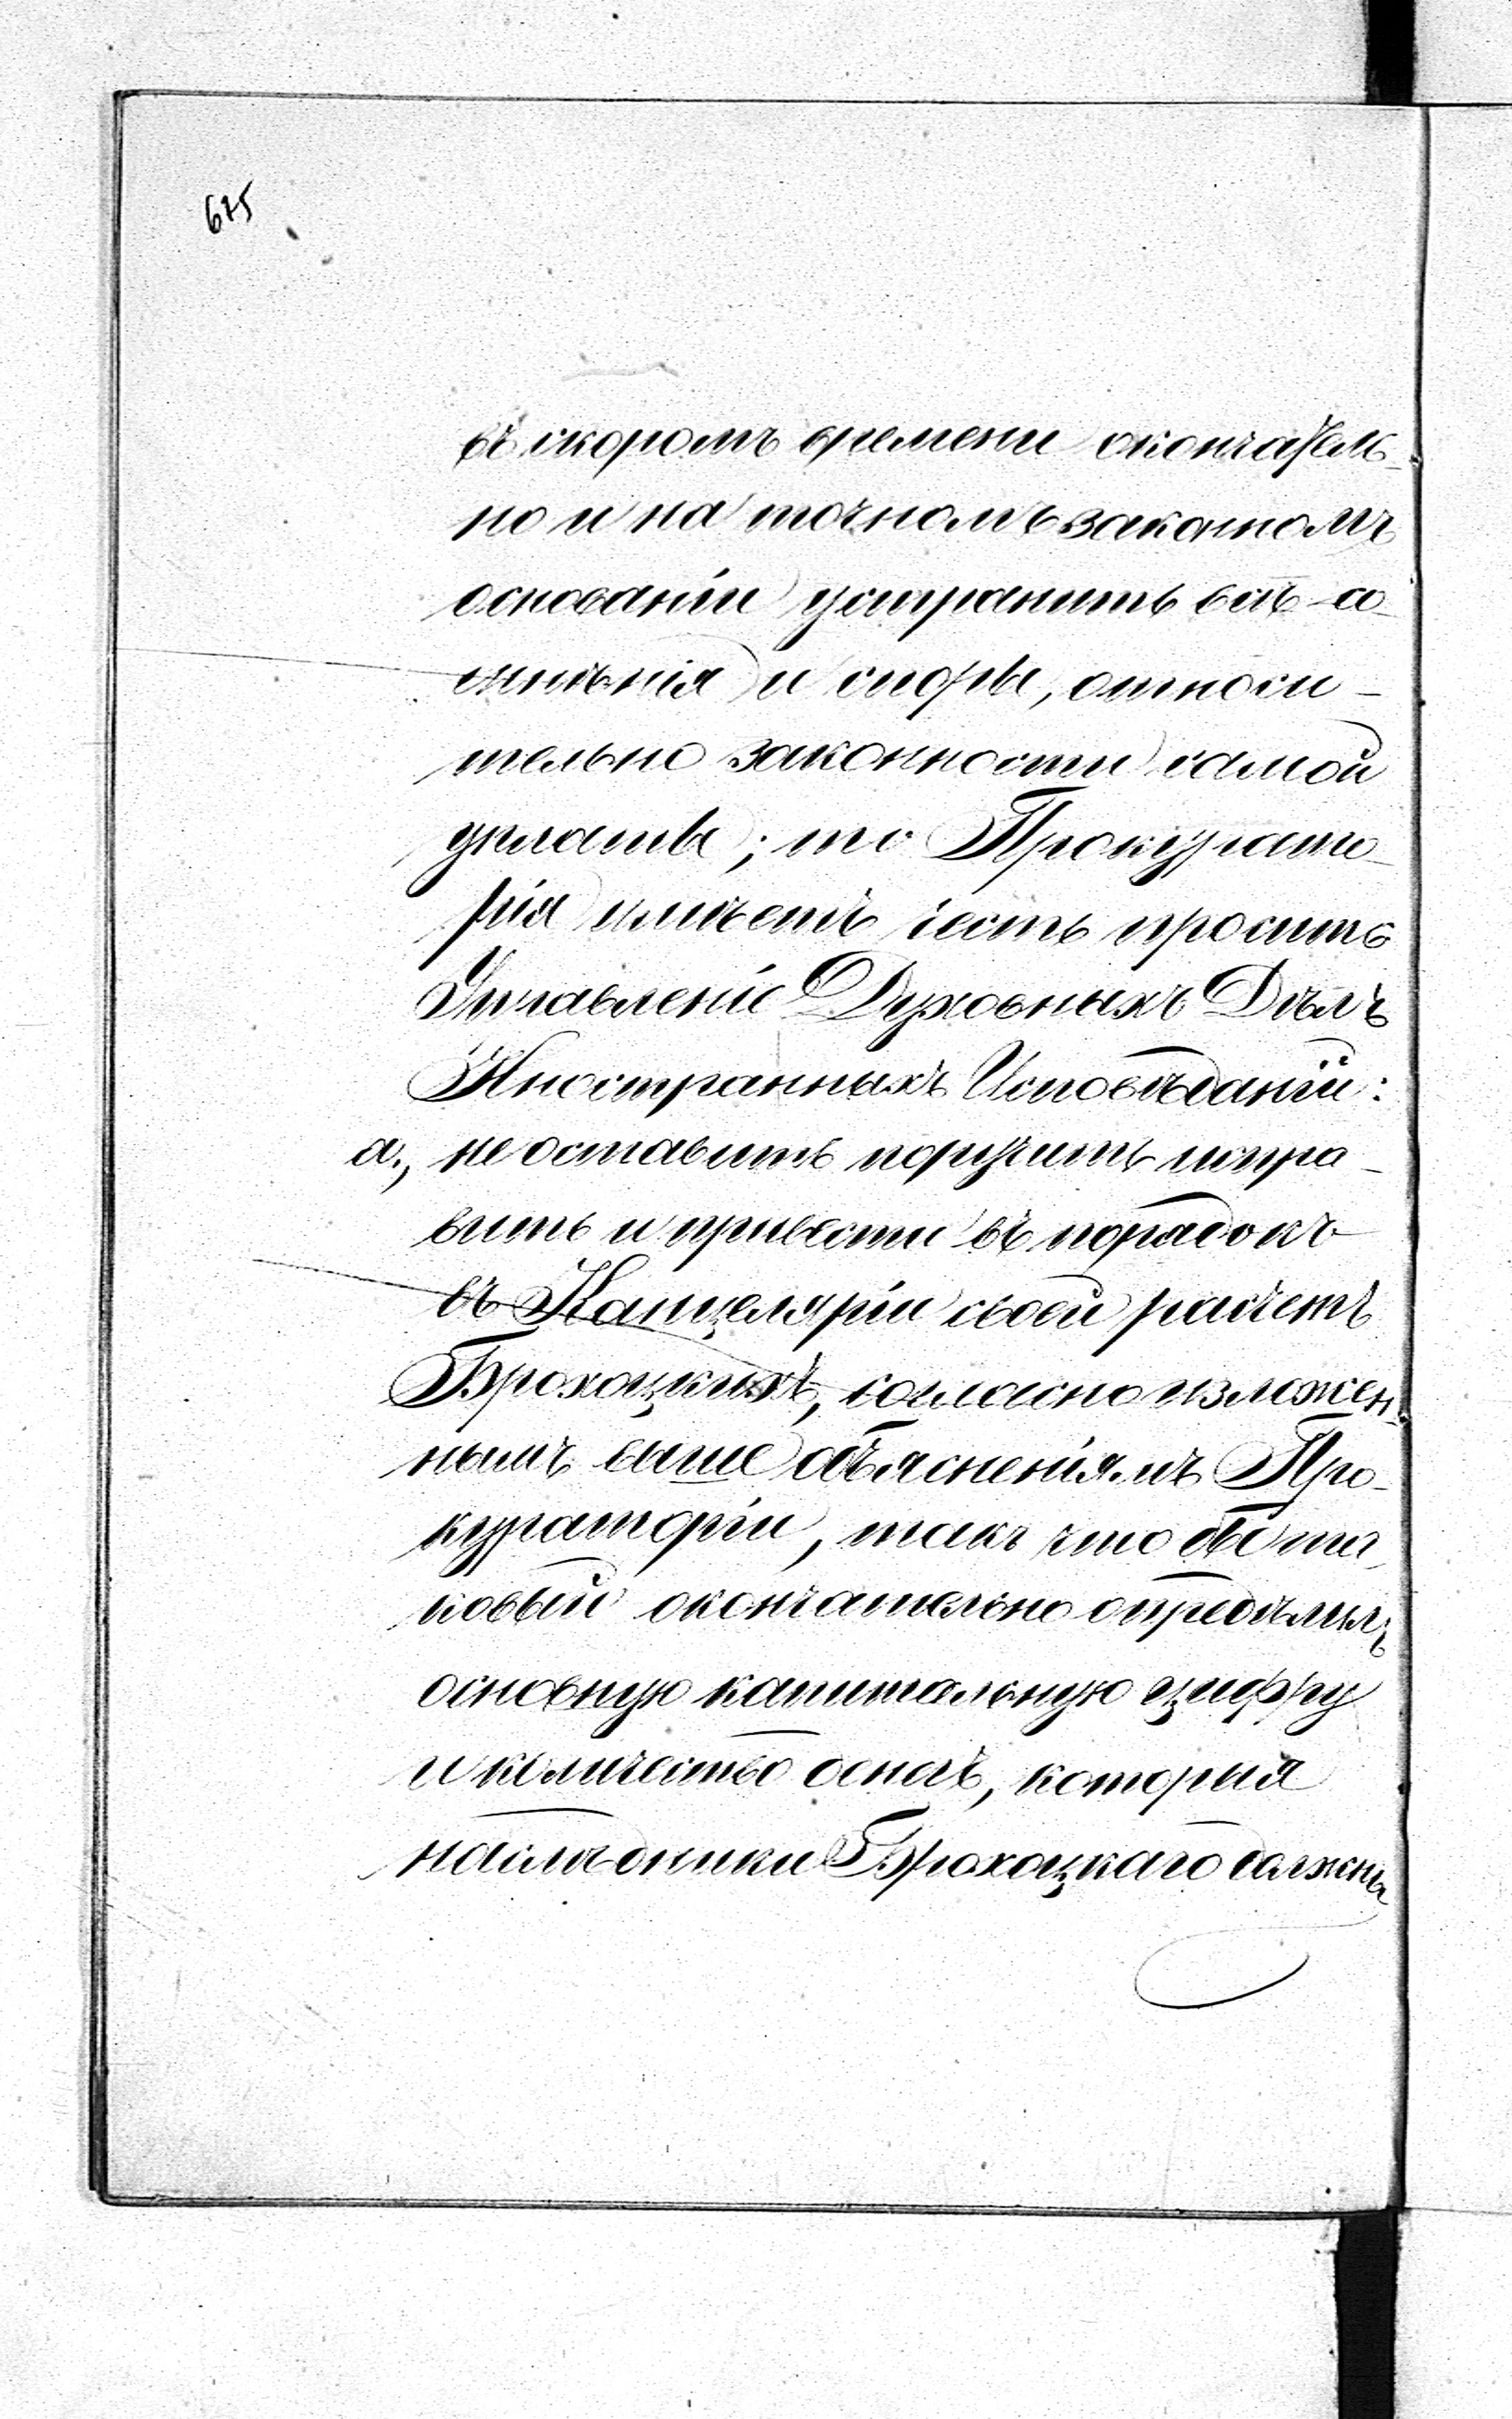 675
въ скоромъ времени окончатель-
но и на точномъ законномъ
основаніи устранить всѣ со-
мнѣнія и споры, относи-
тельно законности самой
уплаты; то Прокурато-
рія имѣетъ честь просить
Управленіе Духовныхъ Дѣлъ
Иностранныхъ Исповѣданій:
а., не оставить поручить испра-
вить и привести въ порядокъ
въ Канцеляріи своей расчетъ
Брохоцкихъ, согласно изложен-
нымъ выше объясненіямъ Про-
кураторіи, такъ что бы та-
ковый окончательно опредѣлилъ
основную капитальную цифру
и количество денегъ, которыя
наслѣдники Брохоцкаго должны